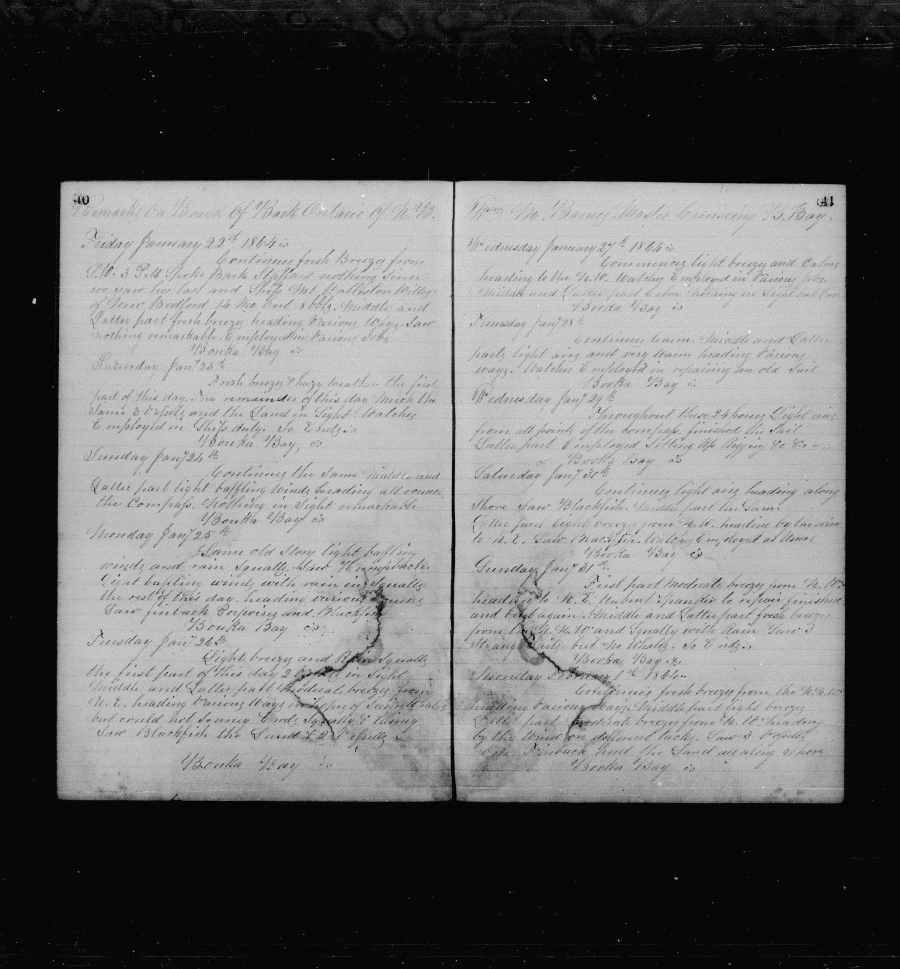 40
Remarks On Board Of Bark Ontario Of N. B.
Friday January 22nd 1864
Continues fresh Breezes from
3 P.M. Spoke Bark Stafford nothing since
we saw her last and Ship Nat
of New Bedford 14 Mo Out Middle and
Latter part fresh breeze heading Various Ways. Saw
nothing remarkable. Employed in Various Jobs
Bouka Bay
Saturday Jany 23rd
Fresh breeze & hazy weather the first
part of this day. The remainder of this day much the
Same 3 Vessels and the Land in Sight Watches
Employed in Ships duty. So Ends
Bouka Bay
Sunday Jany 24th
Continues the Same Middle and
Latter part light baffling winds heading all round
the Compass. Nothing in Sight remarkable
Bouka Bay
Monday Jany 25th
Same old Story light baffling
winds and rain Squalls. Saw Humpbacks.
Light baffling winds with rain in Squalls
the rest of this day. heading various
Saw finback Porpoises and Blackfish
Bouka Bay
Tuesday Jany 26th
Light breeze and Rain Squalls
the first part of this day 2 in Sight
Middle and Latter part Moderate breezes from
N. E. heading Various Ways in hopes of
but could not Ends Squally &
Saw Blackfish the Land & 2 Vessels
Bouka Bay
41
Wm. M. Barnes Master Cruising B. Bay.
Wednesday January 27th 1864
Commences light breezes and Calms
heading to the N.W. Watches Employed in Various Jobs
Middle and Latter part Calm nothing in Sight
Booka Bay
Thursday Jany 28th
Continues Calm. Middle and Latter
parts light airs and very warm heading Various
ways. Watches Employed in repairing an old Sail
Booka Bay
Wednesday Jany 29th
Throughout these 24 hours Light airs
from all points of the Compass. finished the Sail
Latter part Employed Setting Up Rigging &c &c
Booka Bay
Saturday Jany 30th
Continues light airs heading along
Shore Saw Blackfish. Middle part the Same
Latter part Light breeze from N.W. heading by the wind
to N. E. Saw Blackfish. Watches Employed as Usual
Booka Bay
Sunday Jany 31st
First part Moderate breeze from N. W.
heading to N. E. Unbent Spanker to repair finished
and bent again. Middle and Latter part fresh breezes
from N. N. W and Squally with Rain Saw 3
Strange Sails but No Whales. So Ends
Booka Bay
Monday February 1st 1864
Continues fresh breeze from the N. N. W.
heading Various Ways. Middle part light breezes
Latter part Moderate breezes from N. W. heading
by the Wind on different tacks. Saw 3 Vessels
Finback and the Land all along Shore
Booka Bay